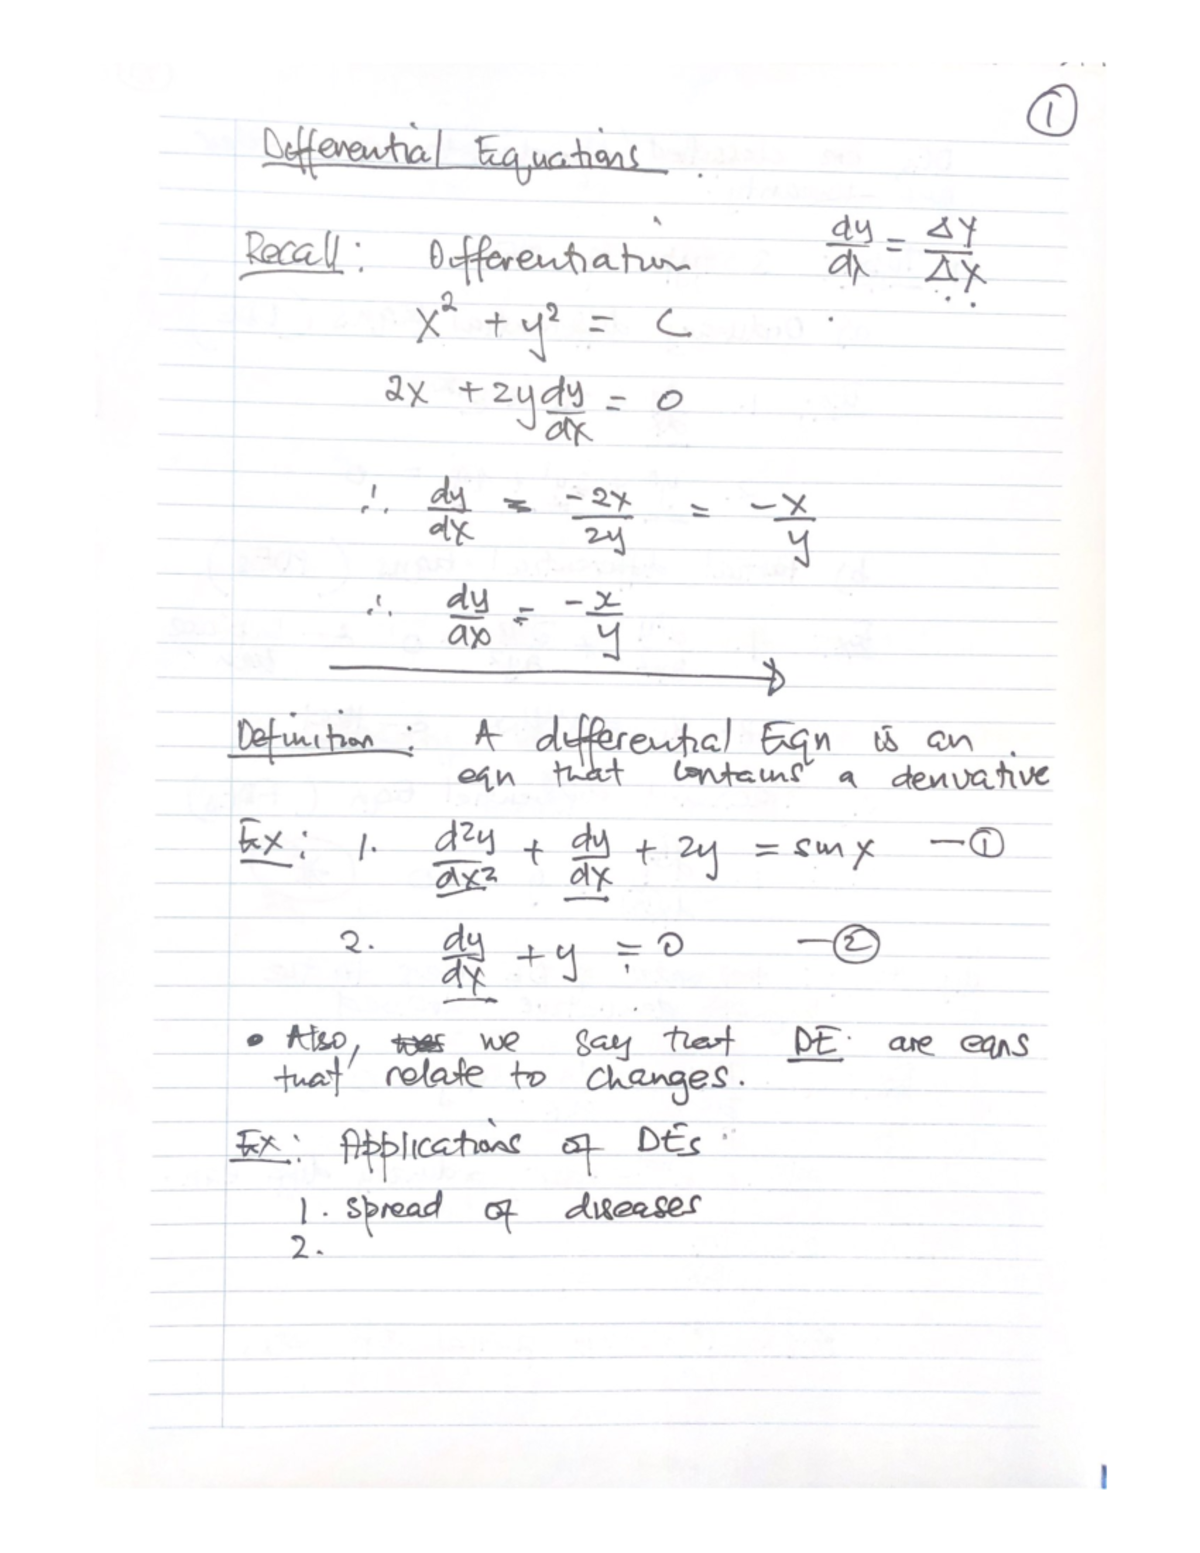 ①
Differential Equations.
Recall: Differentiation dy/dx = ΔY/ΔX
x² + y² = C
2x + 2y dy/dx = 0
∴ dy/dx = -2x/2y = -x/y
∴ dy/dx = -x/y
Definition: A differential Eqn is an
eqn that contains a denvative
Ex: 1. d²y/dx² + dy/dx + 2y = sin x —①
2. dy/dx + y = 0 —②
• Also, we say that DE are eqns
that relate to changes.
Ex: Applications of DEs
1. spread of diseases
2.